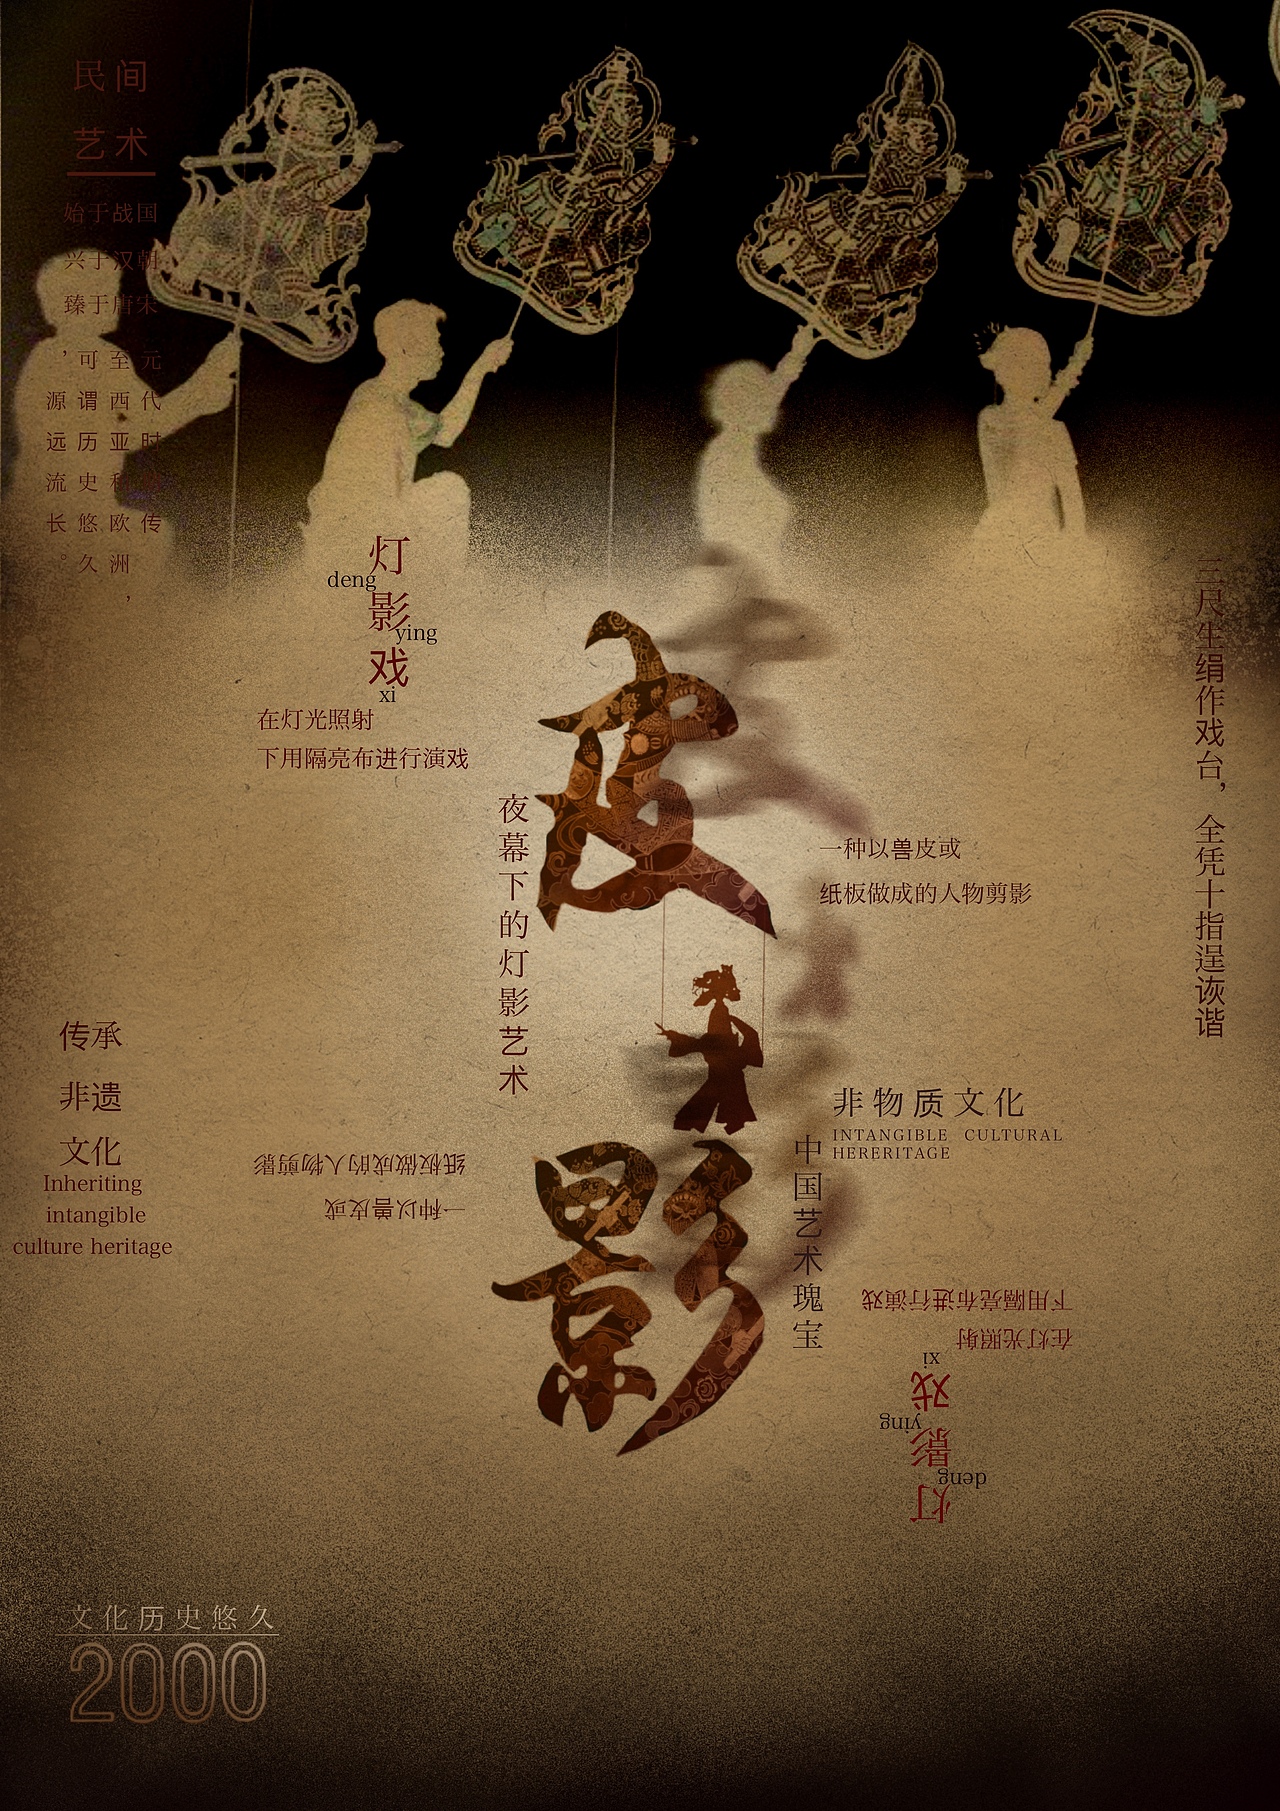 民间
艺术
始于战国
兴于汉朝
臻于唐宋
元代时传
至西亚和欧洲，
可谓历史悠久
，源远流长。
灯影戏
deng
ying
xi
在灯光照射
下用隔亮布进行演戏
三尺生绢作戏台，全凭十指逞诙谐
皮影
夜幕下的灯影艺术
一种以兽皮或
纸板做成的人物剪影
传承
非遗
文化
Inheriting
intangible
culture heritage
非物质文化
INTANGIBLE CULTURAL
HERERITAGE
中国艺术瑰宝
一种以兽皮或
纸板做成的人物剪影
灯影戏
deng
ying
xi
在灯光照射
下用隔亮布进行演戏
文化历史悠久
2000